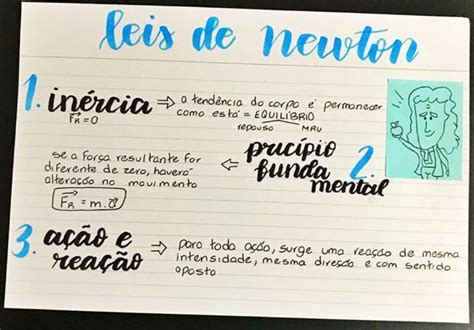 leis de newton
1. inércia ⇒ a tendência do corpo é permanecer
como está = EQUILÍBRIO
F⃗R = 0
repouso MRU
2. prícípio
funda
mental
⇐ se a força resultante for
diferente de zero, haverá
alteração no movimento
F⃗R = m.a⃗
3. ação e
reação ⇒ para toda ação, surge uma reação de mesma
intensidade, mesma direção e com sentido
oposto